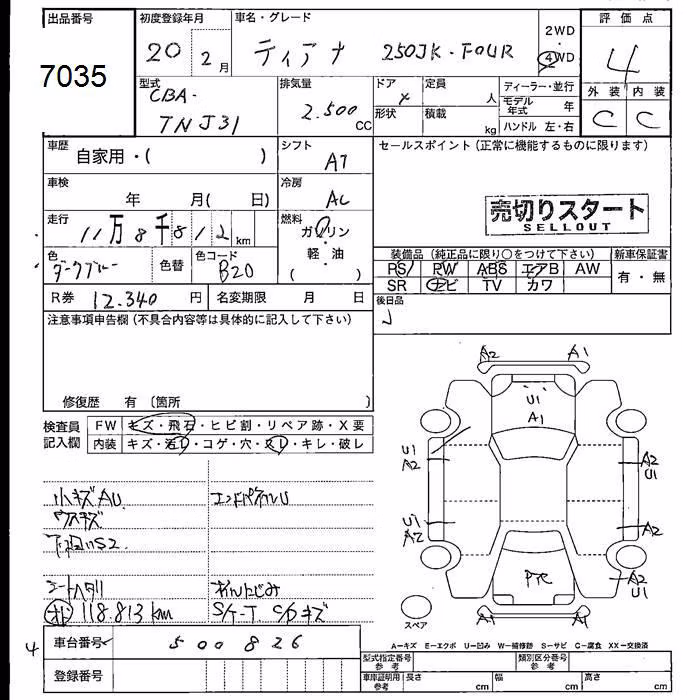 出品番号
7035
初度登録年月
20 2月
車名・グレード
ティアナ 250JK-FOUR
2WD
・
4WD
評価点
4
外装 内装
C C
型式
CBA-
TNJ31
排気量
2.500
CC
ドア
形状
定員
人
積載
kg
ディーラー・並行
モデル年式 年
ハンドル 左・右
車歴
自家用・( )
シフト
AT
車検
年 月( 日)
冷房
AC
走行
11万8千812km
燃料
ガソリン
・
軽油
( )
色
ダークブルー
色替
色コード
B20
R券 12.340 円
名変期限 月 日
セールスポイント(正常に機能するものに限ります)
売切りスタート
SELLOUT
装備品(純正品に限り○をつけて下さい)
PS PW ABS エアB AW
SR ナビ TV カワ
新車保証書
有・無
後日品
注意事項申告欄(不具合内容等は具体的に記入して下さい)
修復歴 有〔箇所 〕
検査員
記入欄
FW キズ・飛石・ヒビ割・リペア跡・X要
内装 キズ・汚レ・コゲ・穴・スレ・キレ・破レ
小キズAU
ウスキズ
下廻りS2
エンドパネルU
シートヘタリ
118.813km
S/ケース C/Pキズ
A2 A1
U1
A1
U1
A2
A2
U1
U1
A2
A2
A2
U1
A1 A1
スペア
A-キズ E-エクボ U-凹み W-補修跡 S-サビ C-腐食 XX-交換済
4
車台番号 500826
登録番号
型式指定番号 参考
類別区分番号 参考
車庫証明用 参考
長さ cm
幅 cm
高さ cm